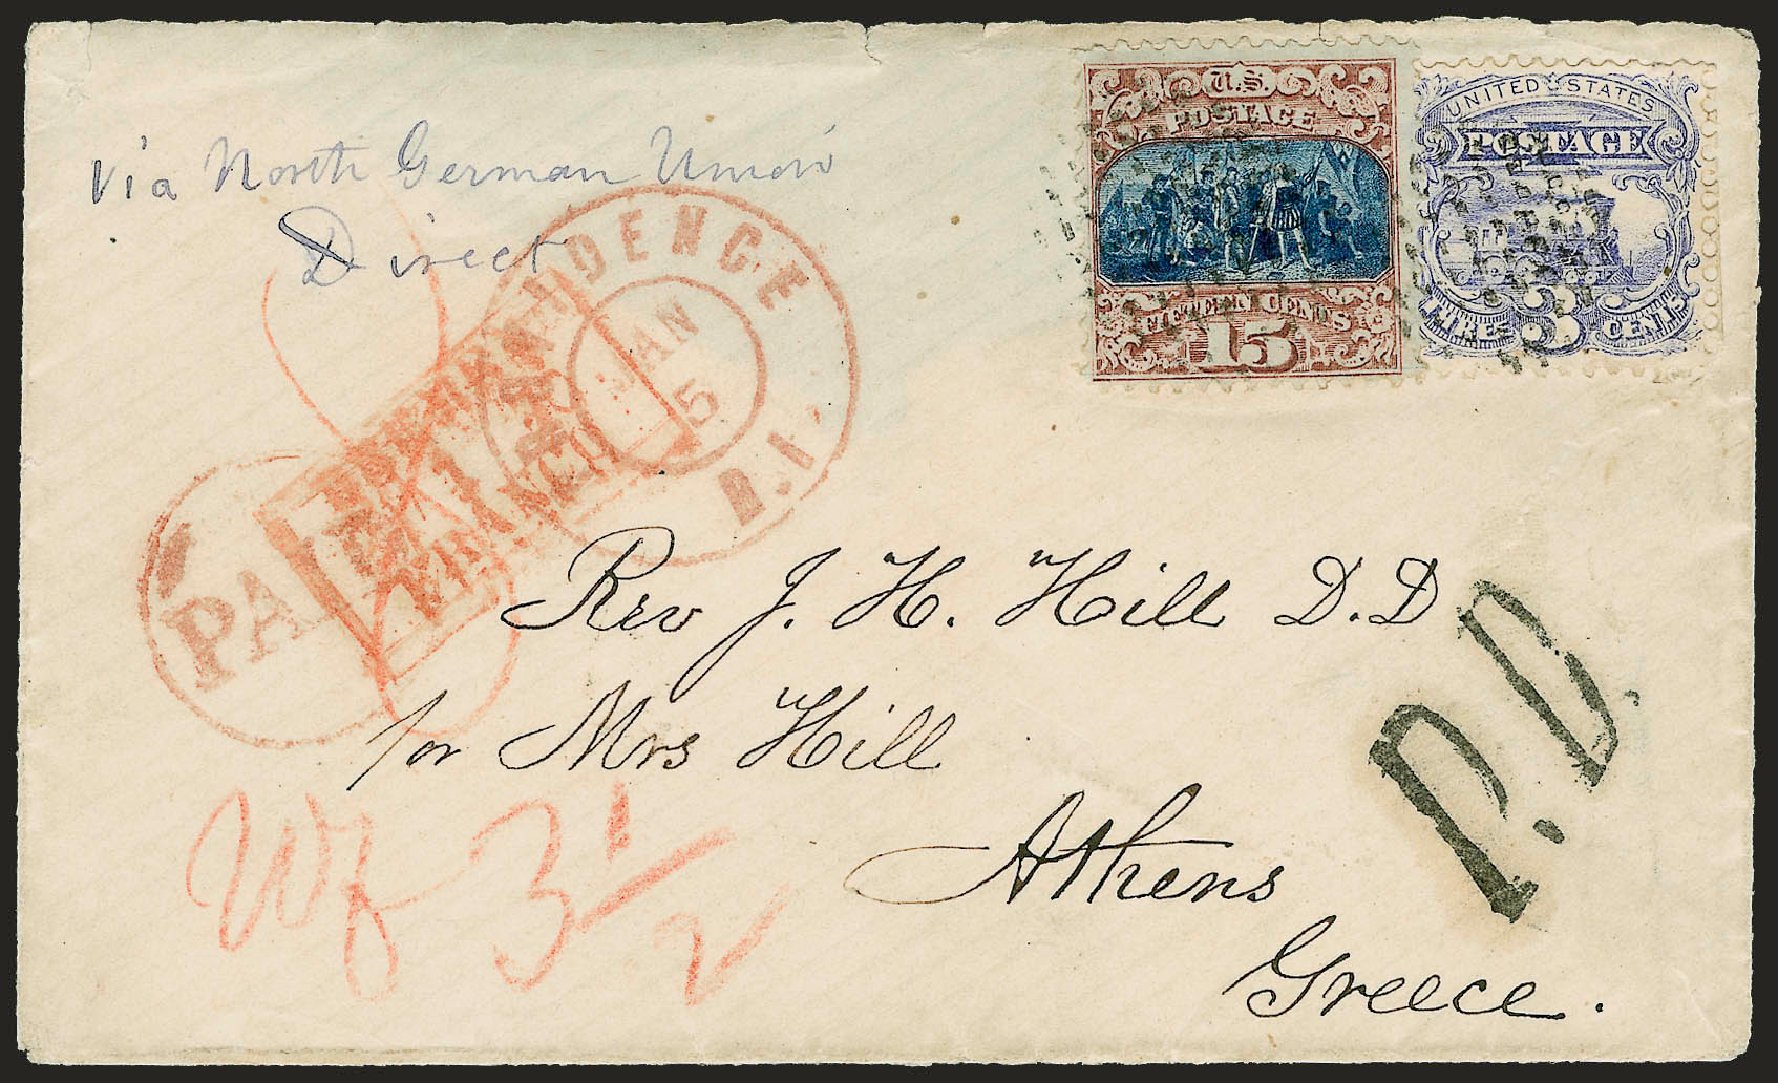 via North German Union
Direct
U.S.
POSTAGE
FIFTEEN CENTS
15
UNITED STATES
POSTAGE
THREE 3 CENTS
JAN
5
R.I.
PA
FRANCO
Rev J. H. Hill D.D
for Mrs Hill
Athens
Greece.
P.D.
Wf 3 1/2